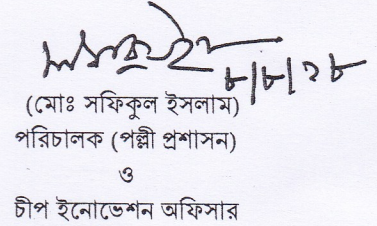 ৮/৮/১৮
(মোঃ সফিকুল ইসলাম)
পরিচালক (পল্লী প্রশাসন)
ও
চীপ ইনোভেশন অফিসার